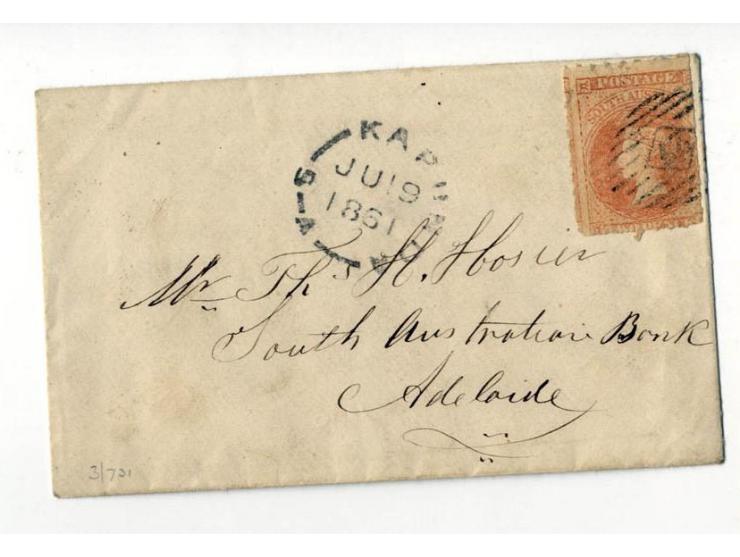 POSTAGE
SOUTH AUS
KAPUNDA
JU 19
1861
S-A
Mr Ths H. Hosier
South Australian Bank
Adelaide
3/701